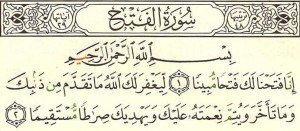 سُورَةُ الْفَتْحِ
بِسْمِ اللَّهِ الرَّحْمَٰنِ الرَّحِيمِ
إِنَّا فَتَحْنَا لَكَ فَتْحًا مُّبِينًا ١ لِّيَغْفِرَ لَكَ اللَّهُ مَا تَقَدَّمَ مِن ذَنبِكَ
وَمَا تَأَخَّرَ وَيُتِمَّ نِعْمَتَهُ عَلَيْكَ وَيَهْدِيَكَ صِرَاطًا مُّسْتَقِيمًا ٢